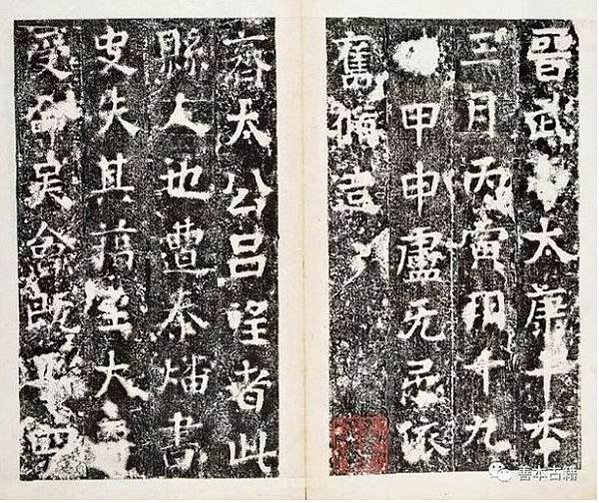 晉武帝太康十年
三月丙寅朔十九
日甲申盧无忌依
舊
齊太公呂望者此
縣人也遭秦燔書
史失其藉至大晉
受命吳會既平四
善本古籍